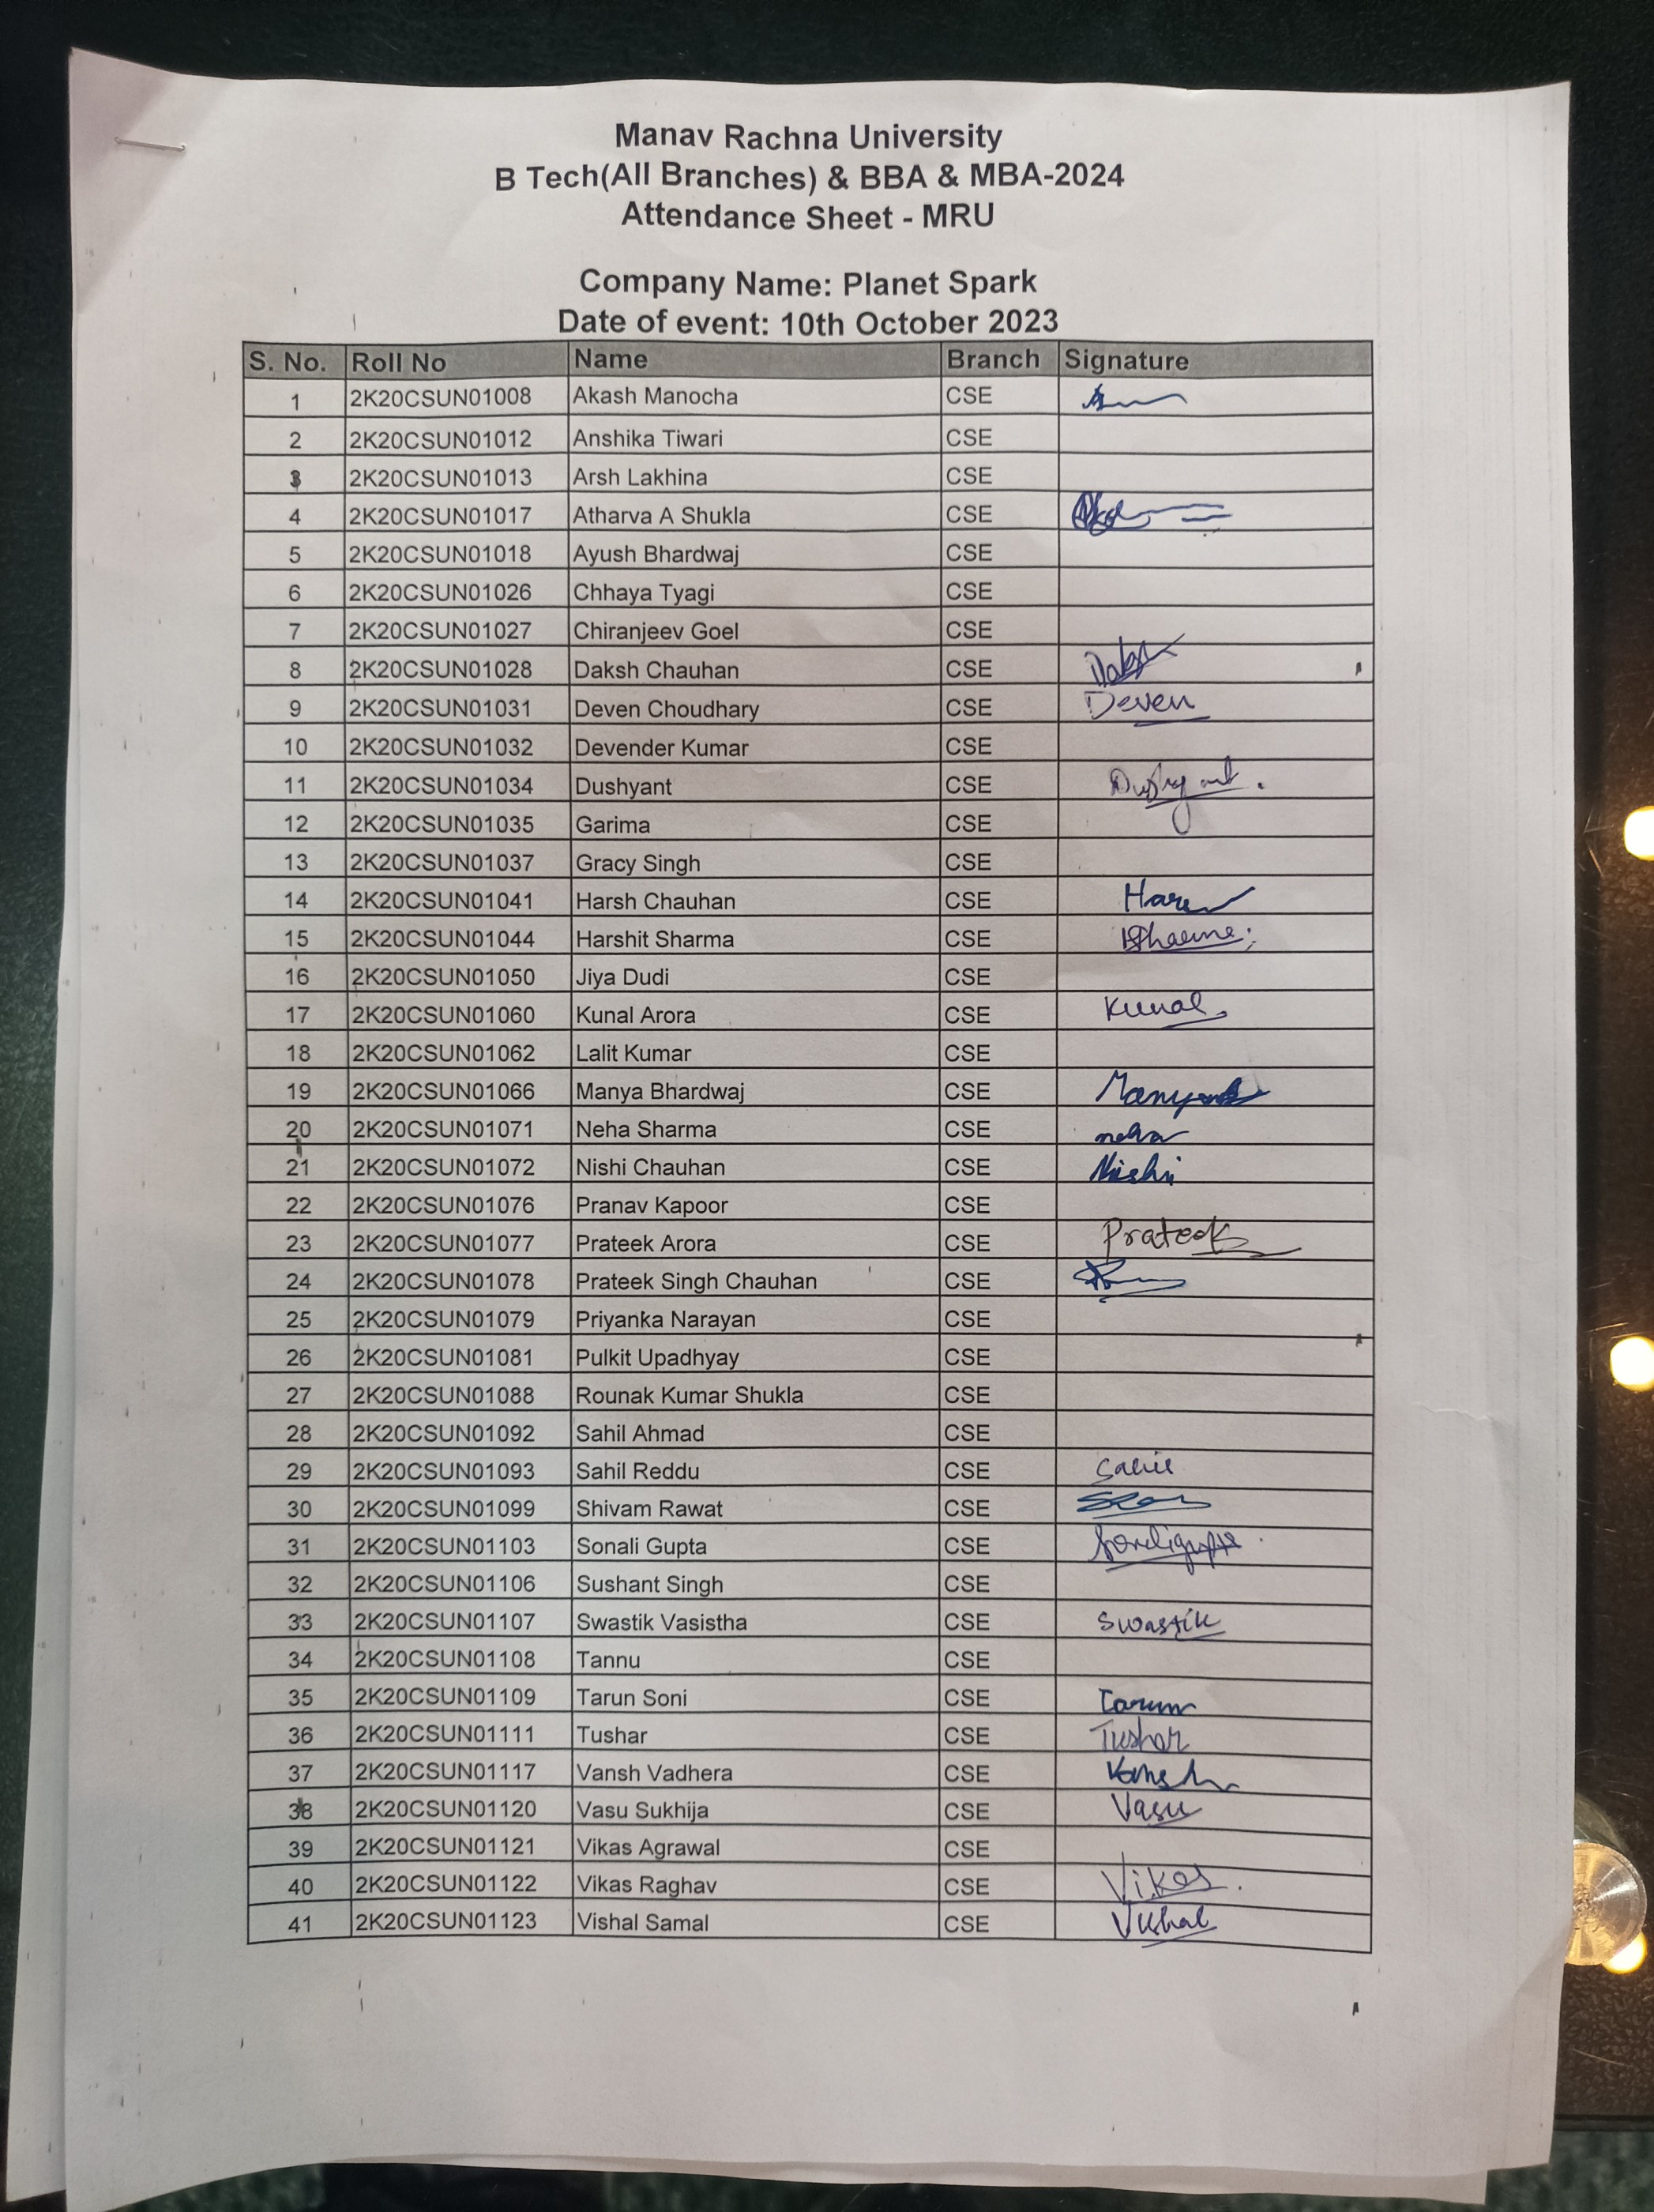 Manav Rachna University
B Tech(All Branches) & BBA & MBA-2024
Attendance Sheet - MRU
Company Name: Planet Spark
Date of event: 10th October 2023
S. No. Roll No Name Branch Signature
1 2K20CSUN01008 Akash Manocha CSE
2 2K20CSUN01012 Anshika Tiwari CSE
3 2K20CSUN01013 Arsh Lakhina CSE
4 2K20CSUN01017 Atharva A Shukla CSE
5 2K20CSUN01018 Ayush Bhardwaj CSE
6 2K20CSUN01026 Chhaya Tyagi CSE
7 2K20CSUN01027 Chiranjeev Goel CSE
8 2K20CSUN01028 Daksh Chauhan CSE
9 2K20CSUN01031 Deven Choudhary CSE Deven
10 2K20CSUN01032 Devender Kumar CSE
11 2K20CSUN01034 Dushyant CSE Dushyant.
12 2K20CSUN01035 Garima CSE
13 2K20CSUN01037 Gracy Singh CSE
14 2K20CSUN01041 Harsh Chauhan CSE
15 2K20CSUN01044 Harshit Sharma CSE
16 2K20CSUN01050 Jiya Dudi CSE
17 2K20CSUN01060 Kunal Arora CSE Kunal
18 2K20CSUN01062 Lalit Kumar CSE
19 2K20CSUN01066 Manya Bhardwaj CSE Manya
20 2K20CSUN01071 Neha Sharma CSE neha
21 2K20CSUN01072 Nishi Chauhan CSE Nishi
22 2K20CSUN01076 Pranav Kapoor CSE
23 2K20CSUN01077 Prateek Arora CSE Prateek
24 2K20CSUN01078 Prateek Singh Chauhan CSE
25 2K20CSUN01079 Priyanka Narayan CSE
26 2K20CSUN01081 Pulkit Upadhyay CSE
27 2K20CSUN01088 Rounak Kumar Shukla CSE
28 2K20CSUN01092 Sahil Ahmad CSE
29 2K20CSUN01093 Sahil Reddu CSE Sahil
30 2K20CSUN01099 Shivam Rawat CSE
31 2K20CSUN01103 Sonali Gupta CSE Sonaligupta
32 2K20CSUN01106 Sushant Singh CSE
33 2K20CSUN01107 Swastik Vasistha CSE Swastik
34 2K20CSUN01108 Tannu CSE
35 2K20CSUN01109 Tarun Soni CSE Tarun
36 2K20CSUN01111 Tushar CSE Tushar
37 2K20CSUN01117 Vansh Vadhera CSE Vansh
38 2K20CSUN01120 Vasu Sukhija CSE Vasu
39 2K20CSUN01121 Vikas Agrawal CSE
40 2K20CSUN01122 Vikas Raghav CSE Vikas.
41 2K20CSUN01123 Vishal Samal CSE Vishal